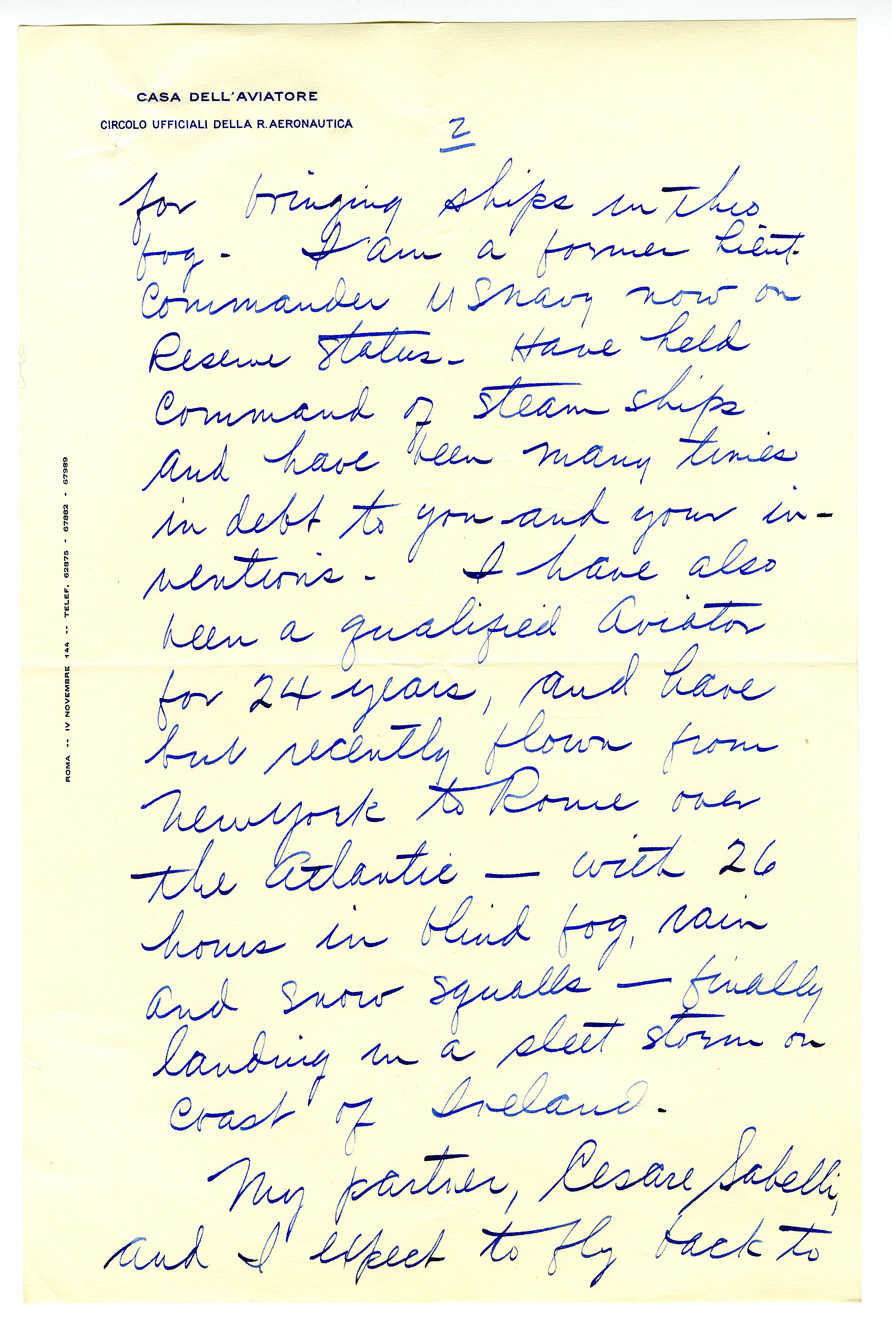 CASA DELL'AVIATORE
CIRCOLO UFFICIALI DELLA R. AERONAUTICA
2
for bringing ships in thro
fog - I am a former Lieut.
Commander U S Navy now on
Reserve Status - Have held
Command of steam ships
and have been many times
in debt to you and your in-
ventions - I have also
been a qualified Aviator
for 24 years, and have
but recently flown from
New York to Rome over
the Atlantic — with 26
hours in blind fog, rain
and snow squalls — finally
landing in a sleet storm on
Coast of Ireland -
My partner, Cesare Sabelli,
and I expect to fly back to
ROMA -- IV NOVEMBRE 144 -- TELEF. 62875 - 67882 - 67989